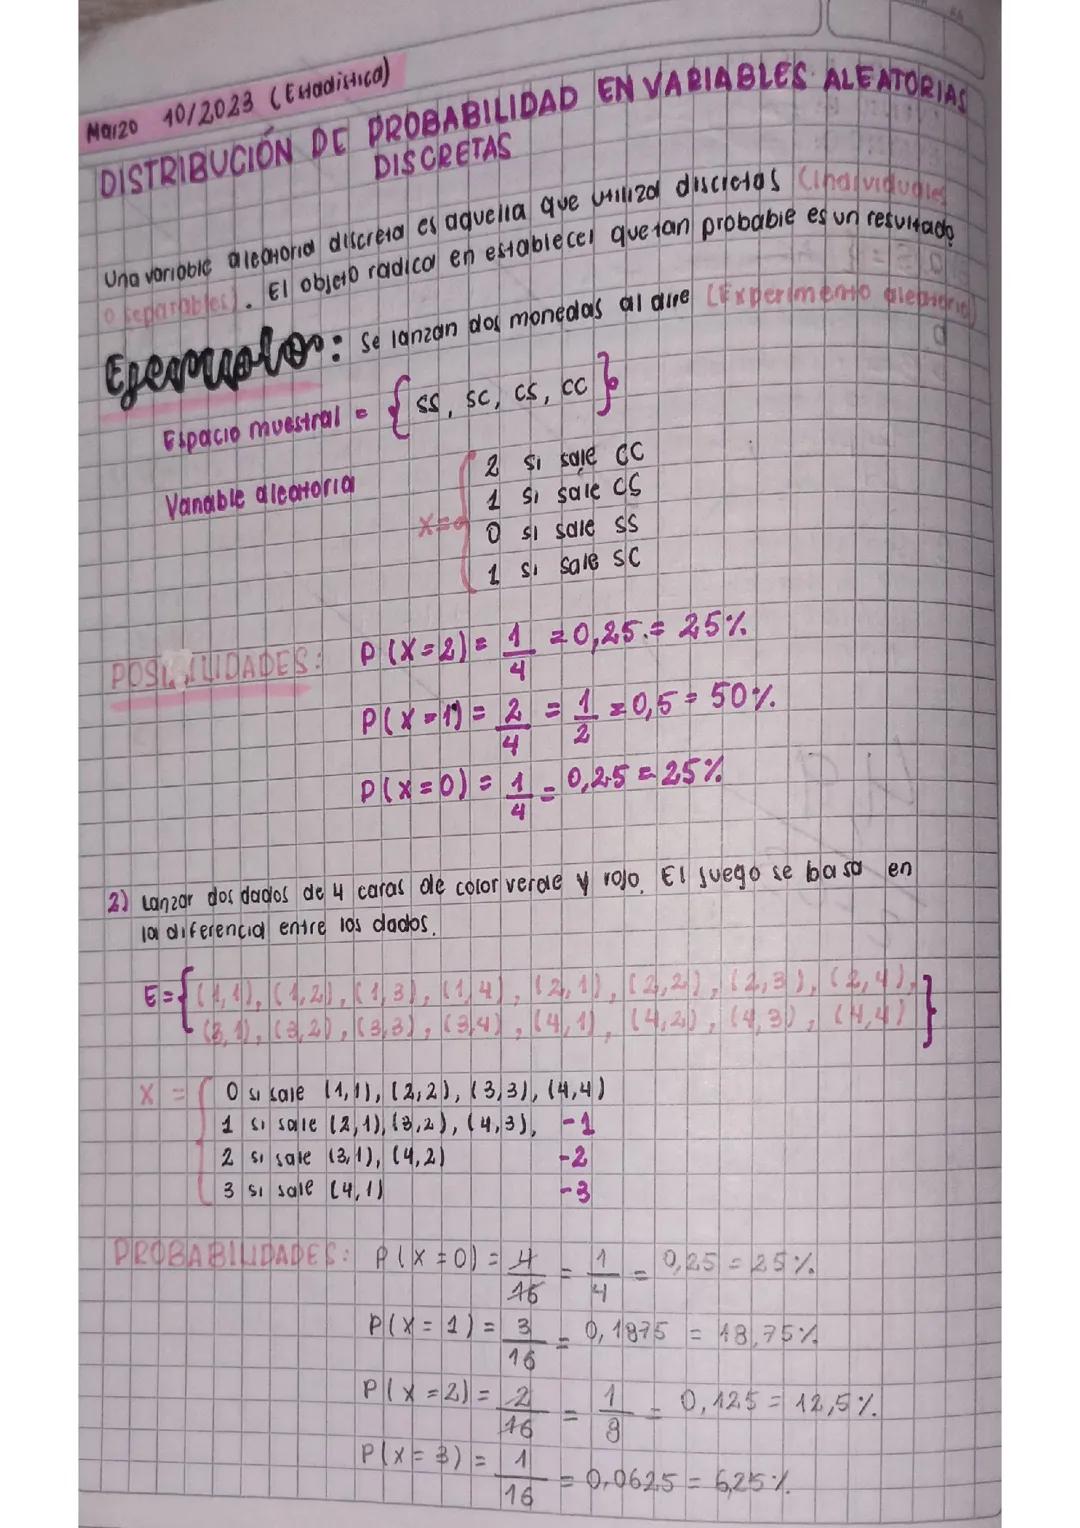 Marzo 10/2023 (Estadistica)
DISTRIBUCIÓN DE PROBABILIDAD EN VARIABLES ALEATORIAS
DISCRETAS
Una variable aleatoria discreta es aquella que utiliza discretas (individuales
o separables). El objeto radica en establecer que tan probable es un resultado
Ejemplo: Se lanzan dos monedas al aire (Experimento aleatorio)
Espacio muestral = { SS, SC, CS, CC }
Variable aleatoria
2 si sale CC
1 si sale CS
X =
0 si sale SS
1 si sale SC
POSIBILIDADES: P(X=2) = 1/4 = 0,25 = 25%
P(X=1) = 2/4 = 1/2 = 0,5 = 50%
P(X=0) = 1/4 = 0,25 = 25%
2) Lanzar dos dados de 4 caras de color verde y rojo. El juego se basa en
la diferencia entre los dados.
E = { (1,1), (1,2), (1,3), (1,4), (2,1), (2,2), (2,3), (2,4),
(3,1), (3,2), (3,3), (3,4), (4,1), (4,2), (4,3), (4,4) }
X = { 0 si sale (1,1), (2,2), (3,3), (4,4)
1 si sale (2,1), (3,2), (4,3), -1
2 si sale (3,1), (4,2) -2
3 si sale (4,1) -3
PROBABILIDADES: P(X=0) = 4/16 = 1/4 = 0,25 = 25%
P(X=1) = 3/16 = 0,1875 = 18,75%
P(X=2) = 2/16 = 1/8 = 0,125 = 12,5%
P(X=3) = 1/16 = 0,0625 = 6,25%